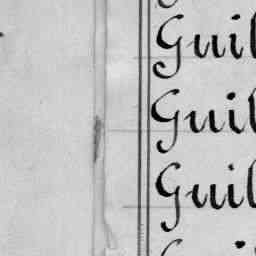 Guil
Guil
Guil